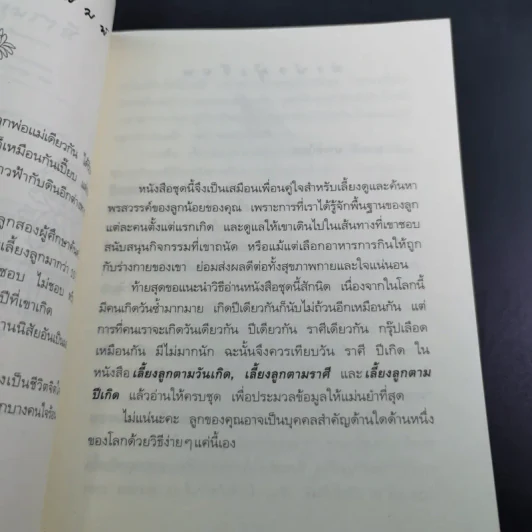 มม
ลูกพ่อแม่เดียวกัน
เหมือนกันเปี๊ยบ
าวฟ้ากับดินอีกต่าง
ลูกสองผู้ศึกษาค้น
เลี้ยงลูกมากว่า
ชอบ ไม่ชอบ
ปีที่เขาเกิด
านนิสัยอันเป็น
งเป็นชีวิตจิตใจ
กบางคนใจร้อน
หนังสือชุดนี้จึงเป็นเสมือนเพื่อนคู่ใจสำหรับเลี้ยงดูและค้นหา
พรสวรรค์ของลูกน้อยของคุณ เพราะการที่เราได้รู้จักพื้นฐานของลูก
แต่ละคนตั้งแต่แรกเกิด และดูแลให้เขาเดินไปในเส้นทางที่เขาชอบ
สนับสนุนกิจกรรมที่เขาถนัด หรือแม้แต่เลือกอาหารการกินให้ถูก
กับร่างกายของเขา ย่อมส่งผลดีต่อทั้งสุขภาพกายและใจแน่นอน
ท้ายสุดขอแนะนำวิธีอ่านหนังสือชุดนี้สักนิด เนื่องจากในโลกนี้
มีคนเกิดวันซ้ำมากมาย เกิดปีเดียวกันก็นับไม่ถ้วนอีกเหมือนกัน แต่
การที่คนเราจะเกิดวันเดียวกัน ปีเดียวกัน ราศีเดียวกัน กรุ๊ปเลือด
เหมือนกัน มีไม่มากนัก ฉะนั้นจึงควรเทียบวัน ราศี ปีเกิด ใน
หนังสือ เลี้ยงลูกตามวันเกิด, เลี้ยงลูกตามราศี และ เลี้ยงลูกตาม
ปีเกิด แล้วอ่านให้ครบชุด เพื่อประมวลข้อมูลให้แม่นยำที่สุด
ไม่แน่นะคะ ลูกของคุณอาจเป็นบุคคลสำคัญด้านใดด้านหนึ่ง
ของโลกด้วยวิธีง่ายๆ แค่นี้เอง